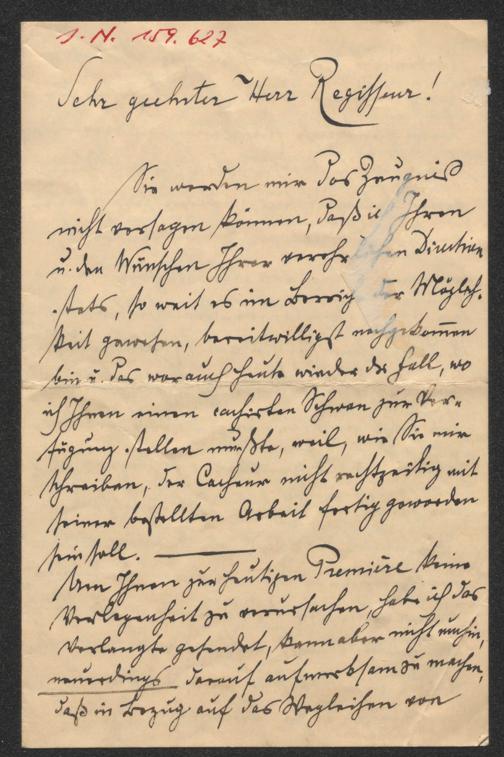 J. N. 159.627
Sehr geehrter Herr Regisseur!
Sie werden mir das Zeugnis
nicht versagen können, daß ich Ihren
u. den Wünschen Ihrer verehrlichen Direktion
stets, so weit es im Bereich der Möglich-
keit gewesen, bereitwilligst nachgekommen
bin u. das war auch heute wieder der Fall, wo
ich Ihnen einen cachirten Schwan zur Ver-
fügung stellen mußte, weil, wie Sie mir
schreiben, der Cacheur nicht rechtzeitig mit
seiner bestellten Arbeit fertig geworden
sein soll. —
Um Ihnen zur heutigen Première keine
Verlegenheit zu verursachen, habe ich das
Verlangte gesendet, kann aber nicht umhin,
neuerdings darauf aufmerksam zu machen,
daß in Bezug auf das Wegleihen von